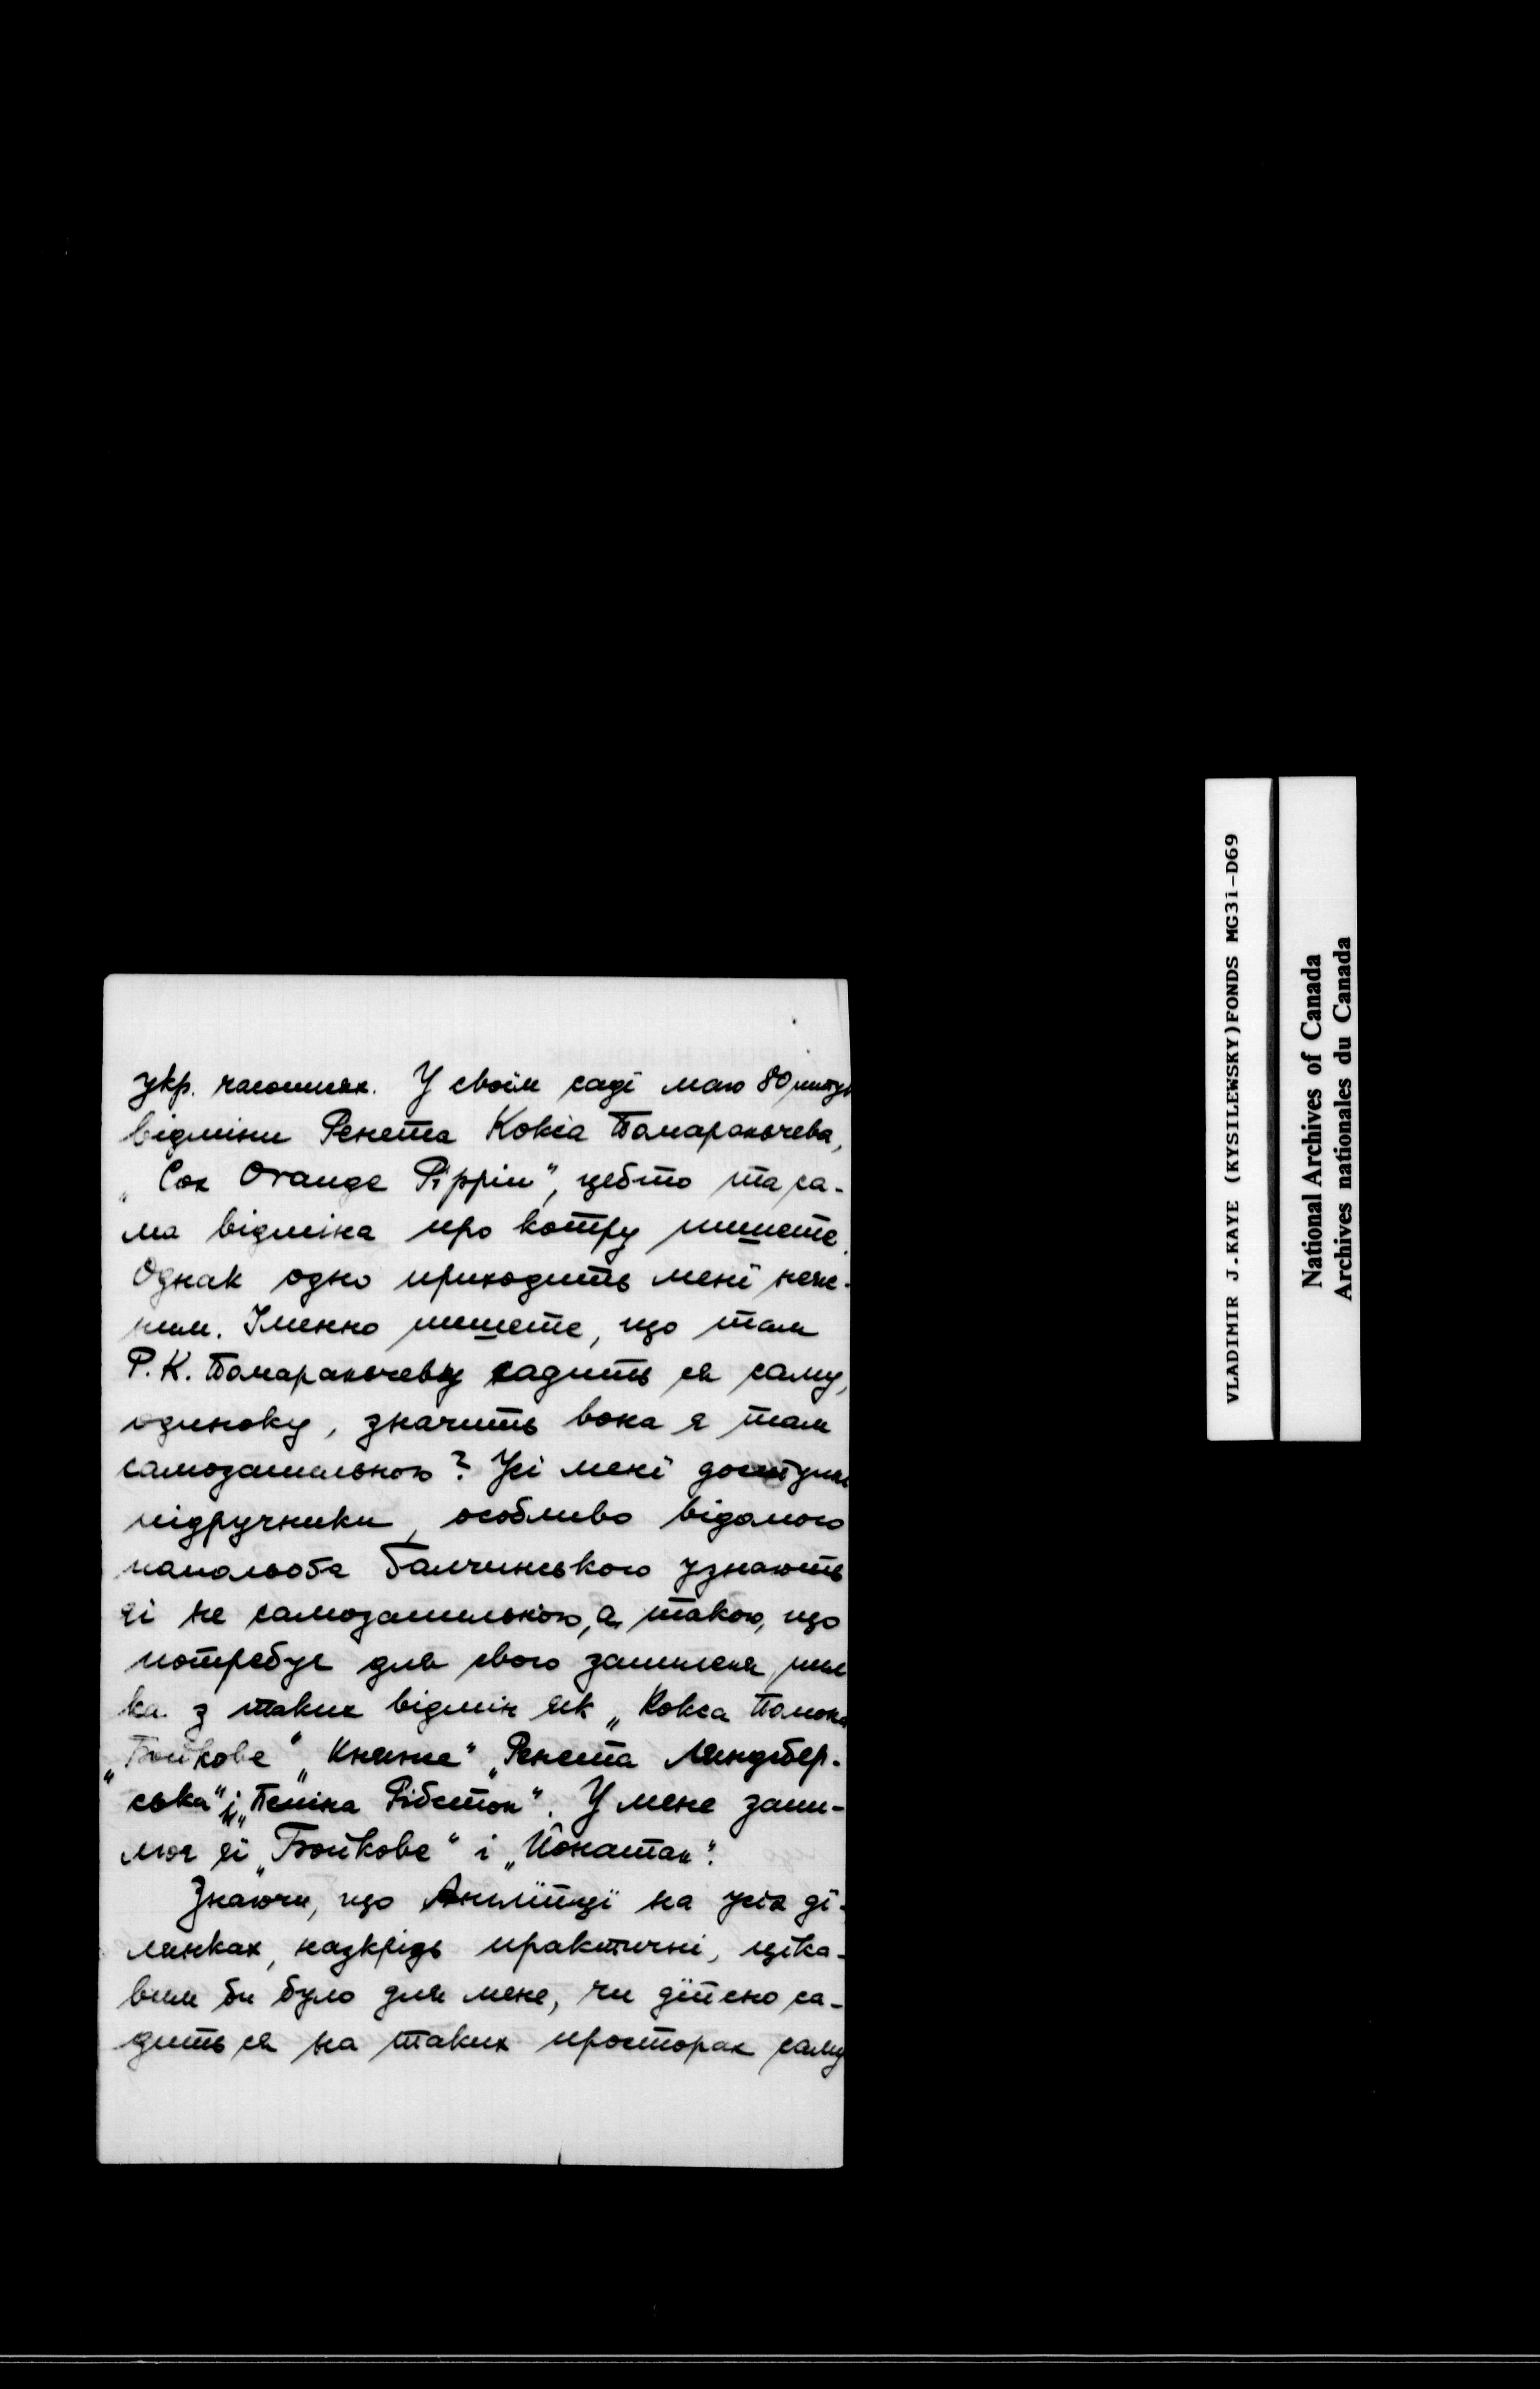 укр. часописях. У своїм саді маю 80 штук
відміни Ренета Кокса Помаранчева,
„Cox Orange Pippin", цебто та са-
ма відміна про котру пишете.
Однак одно приходить мені неяс-
ним. Іменно пишете, що там
Р. К. Помаранчеву садить ся саму,
одиноку, значить вона є там
самозапильною? Усі мені доступні
підручники, особливо відомого
Балчинського узнають
єї не самозапильною, а такою, що
потребує для свого запиленя пил
ка з таких відмін як „Кокса Помона
„Бойкове" „Княже" „Ренета Ляндсбер-
ська" і „Пепіна Рібстон". У мене запи-
лює єї „Бойкове" і „Йонатан".
Знаючи, що Англійці на усіх ді-
лянках, наскрізь практичні, ціка-
вим би було для мене, чи дійсно са-
дить ся на таких просторах саму
VLADIMIR J.KAYE (KYSILEWSKY)FONDS MG31-D69
National Archives of Canada
Archives nationales du Canada